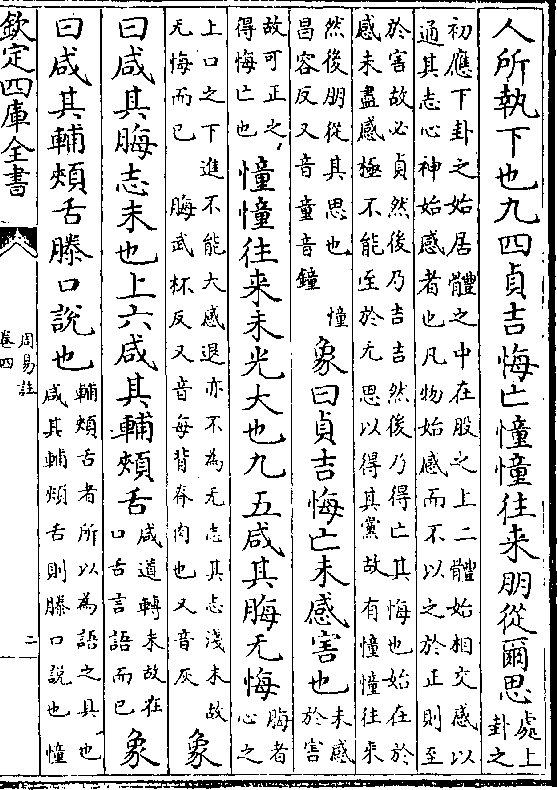 人所執下也九四貞吉悔亡憧憧往来朋從爾思處上卦之
初應下卦之始居體之中在股之上二體始相交感以
通其志心神始感者也凡物始感而不以之於正則至
於害故必貞然後乃吉吉然後乃得亡其悔也始在於
感未盡感極不能至於无思以得其黨故有憧憧往来
然後朋從其思也 憧昌容反又音童音鐘象曰貞吉悔亡未感害也未感於害
故可正之得悔亡也憧憧往来未光大也九五咸其脢无悔脢者心之
上口之下進不能大感退亦不為无志其志淺末故
无悔而已 脢武杯反又音每背脊肉也又音灰象
曰咸其脢志末也上六咸其輔頰舌咸道轉末故在口舌言語而已象
曰咸其輔頰舌滕口說也輔頰舌者所以為語之具也咸其輔頰舌則滕口說也憧
欽定四庫全書
周易註
卷四
二